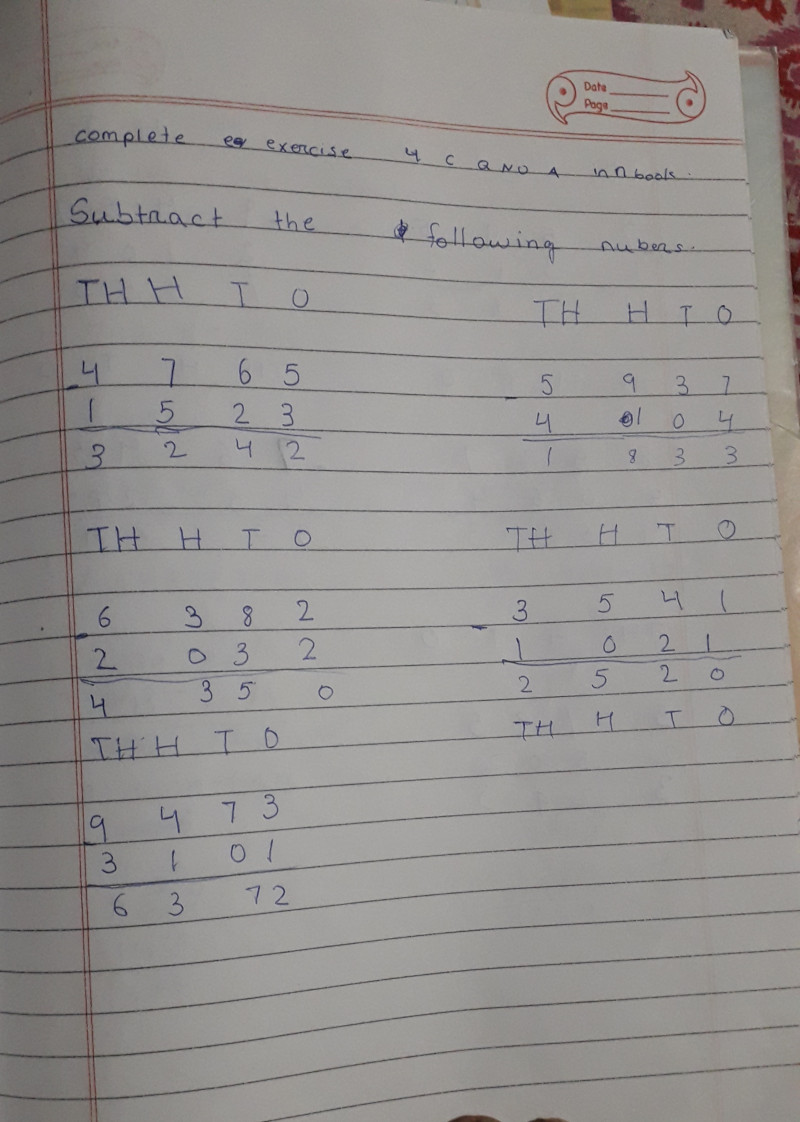 Date
Page
complete exercise 4 C Q NO A in n book.
Subtract the following nubers.
TH H T O TH H T O
4 7 6 5 5 9 3 7
- 1 5 2 3 - 4 1 0 4
3 2 4 2 1 8 3 3
TH H T O TH H T O
6 3 8 2 3 5 4 1
- 2 0 3 2 - 1 0 2 1
4 3 5 0 2 5 2 0
TH H T O TH H T O
9 4 7 3
3 1 0 1
6 3 7 2